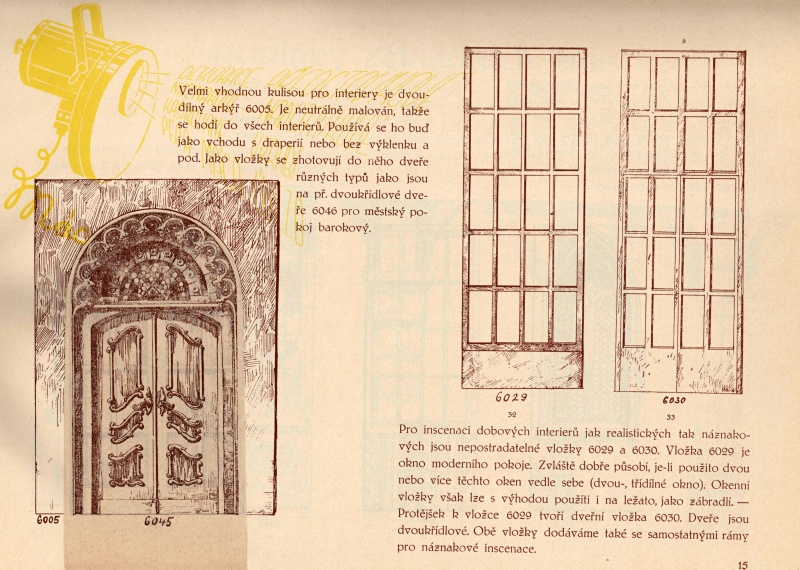 Velmi vhodnou kulisou pro interiery je dvou-
dilný arkýř 6005. Je neutrálně malován, takže
se hodí do všech interierů. Používá se ho buď
jako vchodu s draperií nebo bez výklenku a
pod. Jako vložky se zhotovují do něho dveře
různých typů jako jsou
na př. dvoukřídlové dve-
ře 6046 pro městský po-
koj barokový.
6005
6045
6029
32
6030
33
Pro inscenaci dobových interierů jak realistických tak náznako-
vých jsou nepostradatelné vložky 6029 a 6030. Vložka 6029 je
okno moderního pokoje. Zvláště dobře působí, je-li použito dvou
nebo více těchto oken vedle sebe (dvou-, třídílné okno). Okenní
vložky však lze s výhodou použíti i na ležato, jako zábradlí. —
Protějšek k vložce 6029 tvoří dveřní vložka 6030. Dveře jsou
dvoukřídlové. Obě vložky dodáváme také se samostatnými rámy
pro náznakové inscenace.
15